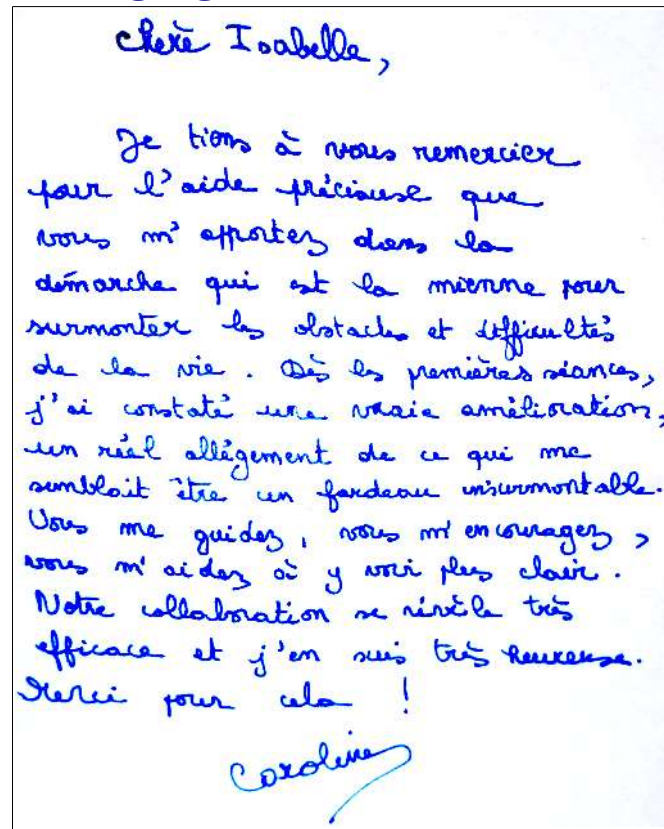 Chère Isabelle,
Je tiens à vous remercier
pour l'aide précieuse que
vous m'apportez dans la
démarche qui est la mienne pour
surmonter les obstacles et difficultés
de la vie. Dès les premières séances,
j'ai constaté une vraie amélioration,
un réel allégement de ce qui me
semblait être un fardeau insurmontable.
Vous me guidez, vous m'encouragez,
vous m'aidez à y voir plus clair.
Notre collaboration se révèle très
efficace et j'en suis très heureuse.
Merci pour cela !
Caroline